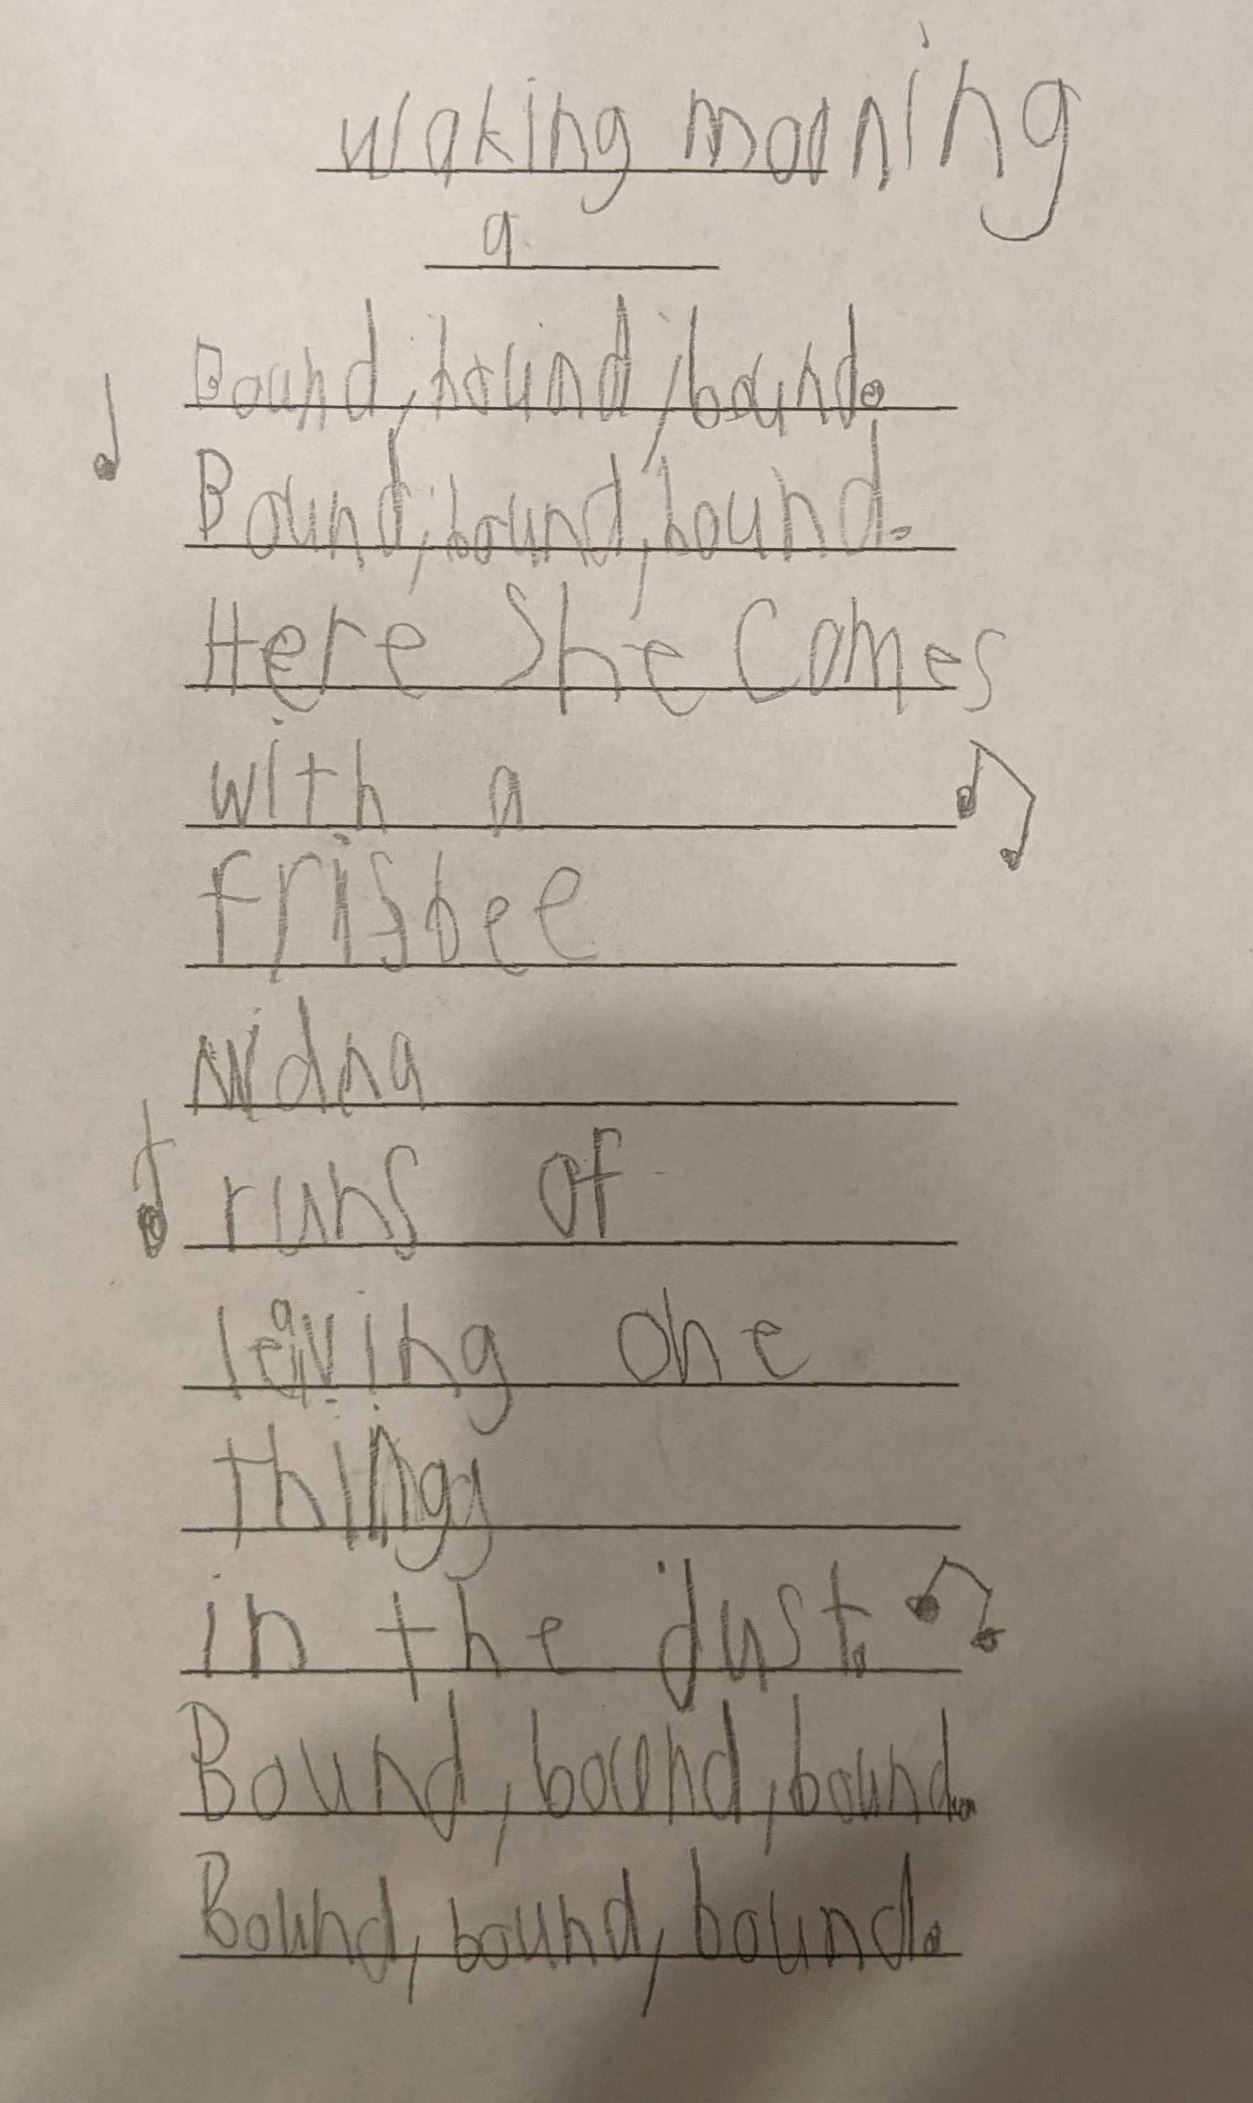 waking morning
a
Bound, bound, bound.
Bound, bound, bound.
Here She Comes
with a
frisbee
runs of
leaving one
thingg
in the dust.
Bound, bound, bound.
Bound, bound, bound.